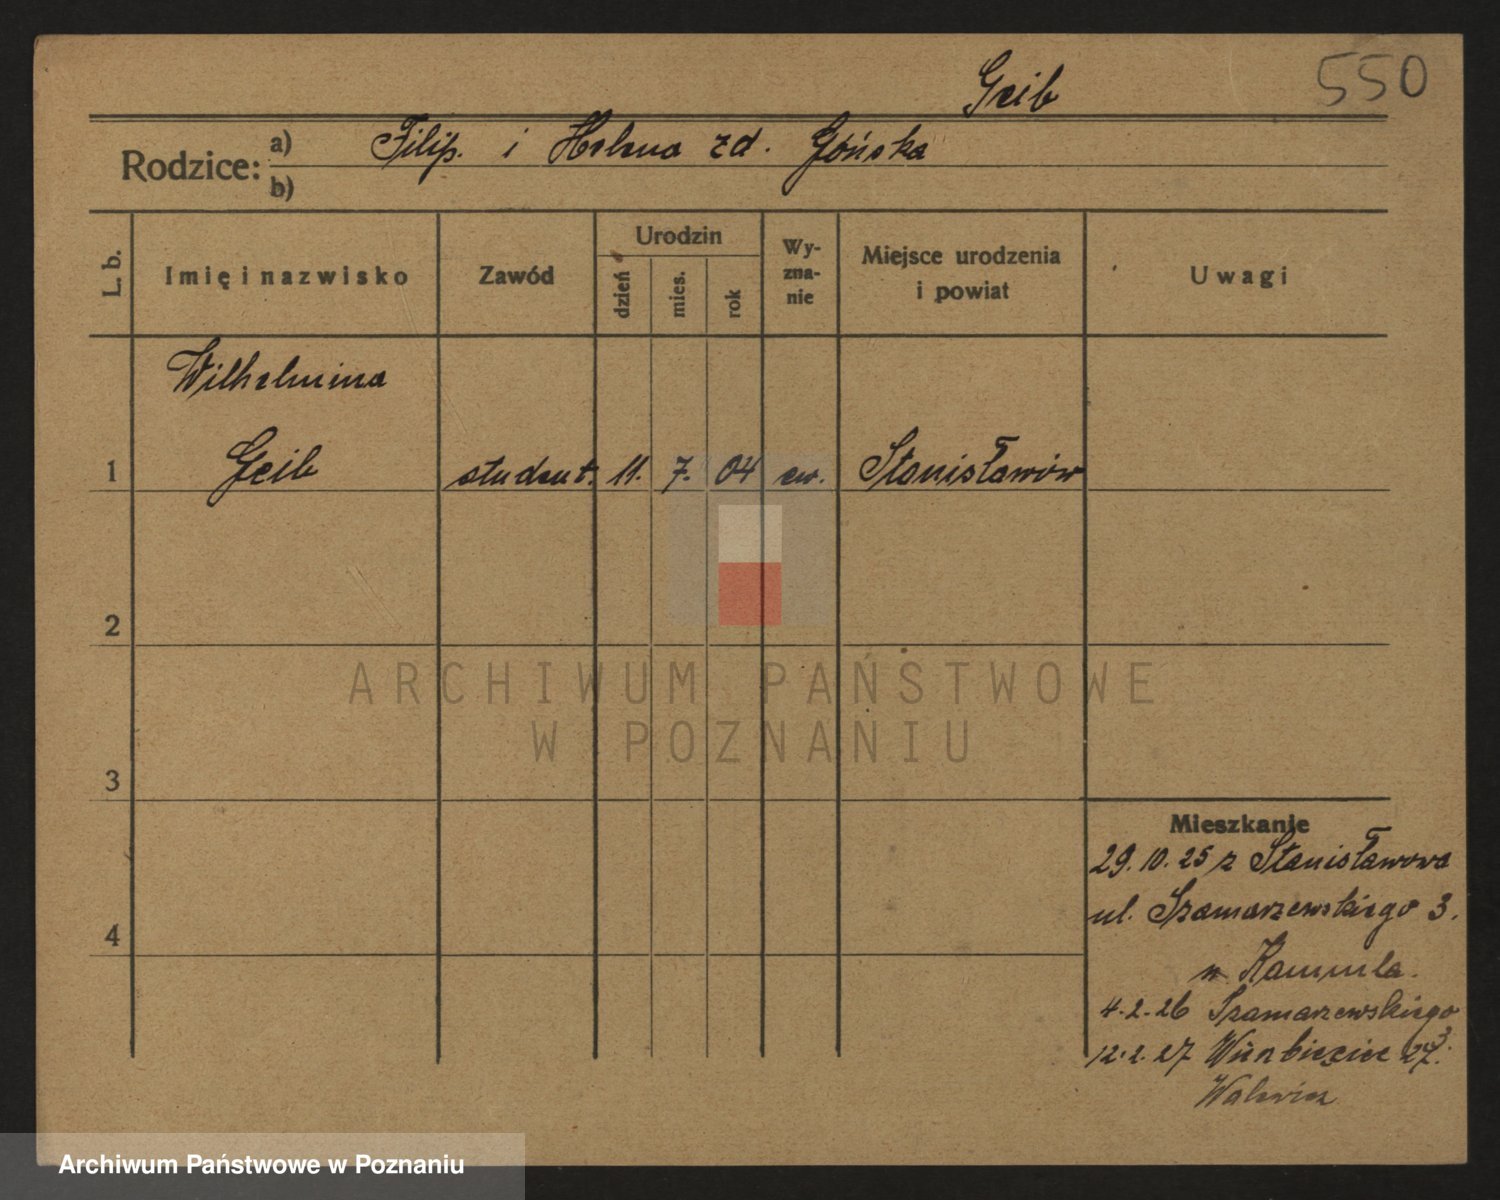 Geib
550
Rodzice:
a) Filip. i Helena zd. Gońska
b)
L. b.
Imię i nazwisko
Zawód
Urodzin
dzień
mies.
rok
Wy-
zna-
nie
Miejsce urodzenia
i powiat
Uwagi
Wilhelmina
1 Geib student. 11. 7. 04 ew. Stanisławów
2
3
4
Mieszkanie
29. 10. 25 z Stanisławowa
ul. Szamarzewskiego 3.
4. 2. 26 Szamarzewskiego
3.
12. 2. 27 27.
ARCHIWUM PAŃSTWOWE
W POZNANIU
Archiwum Państwowe w Poznaniu